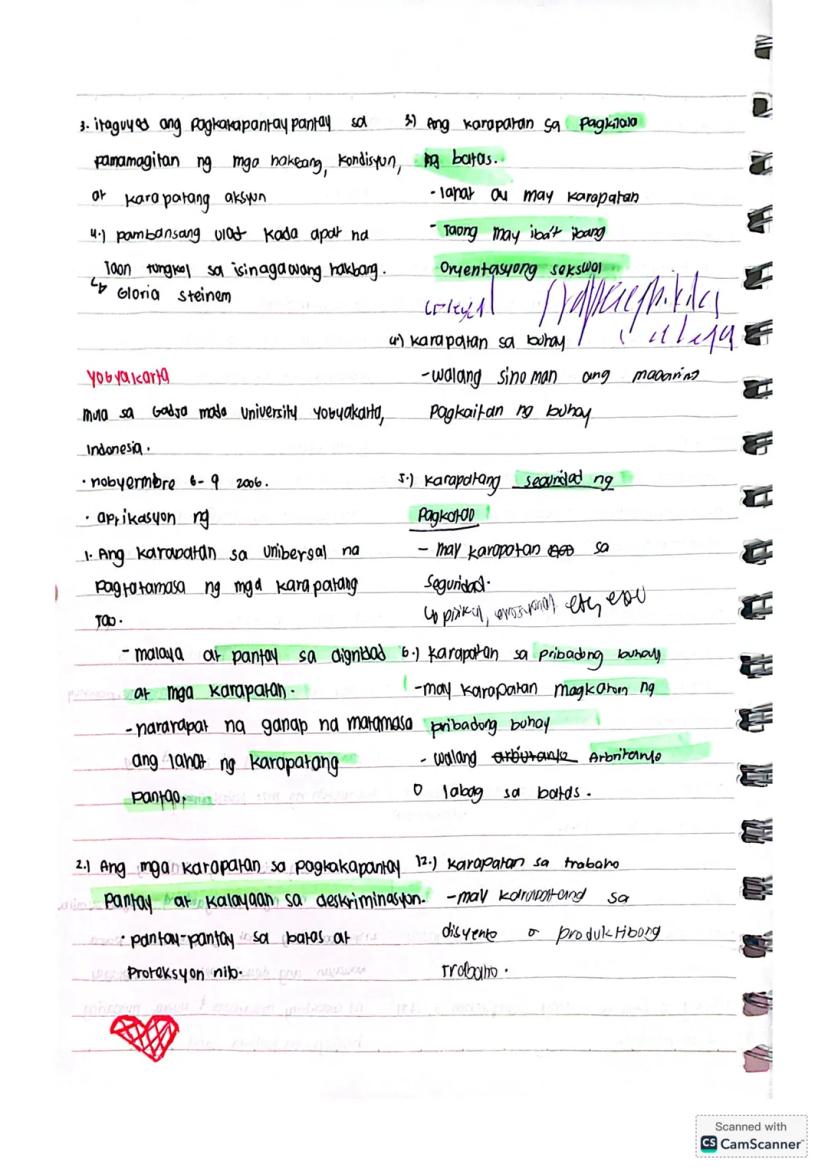 3. itaguyod ang pagkakapantaypantay sa
pamamagitan ng mga hakbang, kondisyun,
at karapatang aksyun
4.) pambansang ulat kada apat na
Taon tungkol sa isinagawang hakbang.
↳ Gloria steinem
Yogyakarta
mula sa Gadja mada University Yogyakarta,
Indonesia.
• nobyermbre 6-9 2006.
• aprikasyon ng
1. Ang karapatan sa unibersal na
Pagtatamasa ng mga karapatang
Tao.
- malaya at pantay sa dignidad
at mga karapatan.
- nararapat na ganap na matamasa
ang lahat ng karapatang
Pantao,
2.) Ang mga karapatan sa pagkakapantay
Pantay at kalayaan sa deskriminasyon.
• pantay-pantay sa batas at
Proteksyon nito.
3.) Ang karapatan sa Pagkilala
ng batas.
- lahat ay may karapatan
- Taong may iba't ibang
Oryentasyong sekswal
4.) karapatan sa buhay
- walang sino man ang maaaring
Pagkaitan ng buhay
5.) karapatang seguridad ng
Pagkatao
- may karapatan sa
Seguridad.
↳ pisikal, emosyonal etc,
6.) karapatan sa pribadong buhay
- may karapatan magkaron ng
pribadong buhay
- walang Arbritaryo
O labag sa batas.
12.) karapatan sa trabaho
- may karapatang sa
disyente o produktibong
trabaho.
Scanned with
CS CamScanner